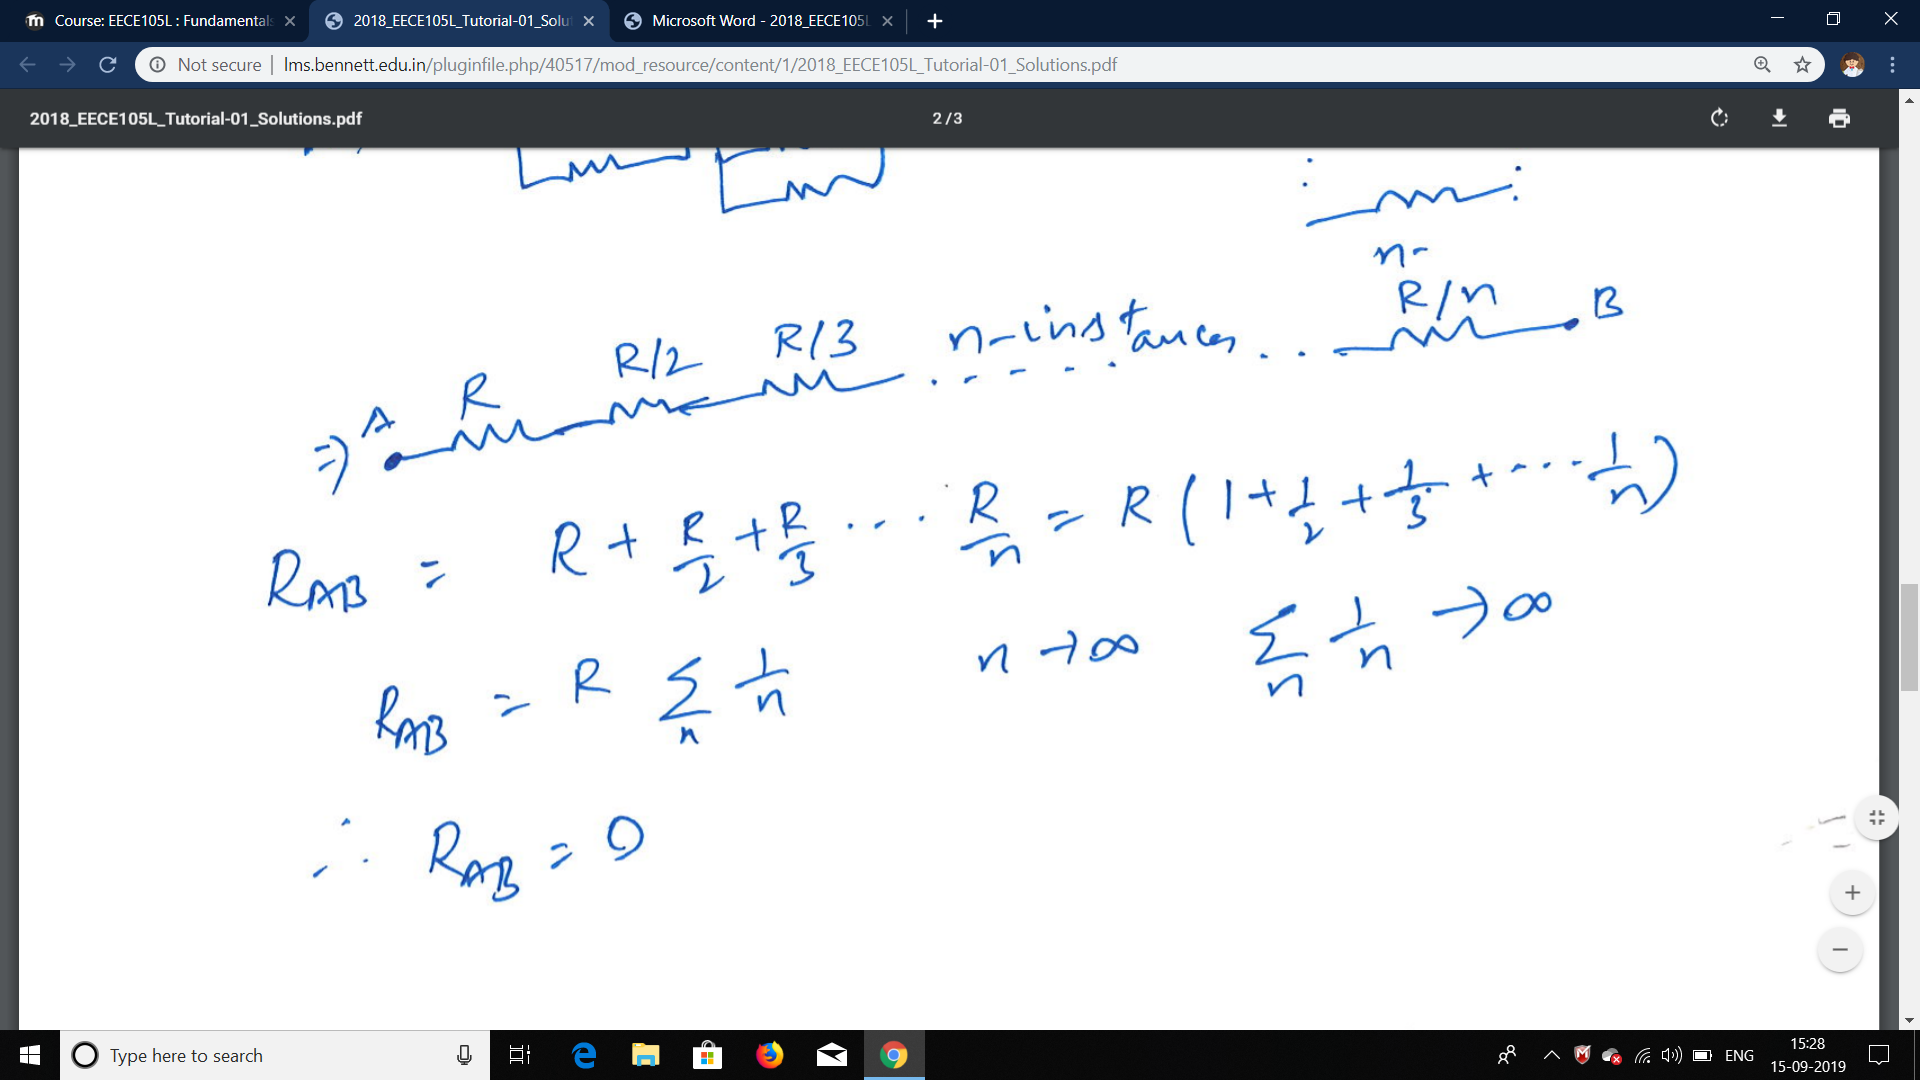 Course: EECE105L : Fundamentals
2018_EECE105L_Tutorial-01_Solut
Microsoft Word - 2018_EECE105L
Not secure | lms.bennett.edu.in/pluginfile.php/40517/mod_resource/content/1/2018_EECE105L_Tutorial-01_Solutions.pdf
2018_EECE105L_Tutorial-01_Solutions.pdf
2 / 3
n-
⇒ A R R/2 R/3 n-instances .. R/n B
R_AB = R + R/2 + R/3 ... R/n = R (1 + 1/2 + 1/3 + ... 1/n)
R_AB = R Σ_n 1/n n → ∞ Σ_n 1/n → ∞
∴ R_AB = 0
Type here to search
ENG
15:28
15-09-2019